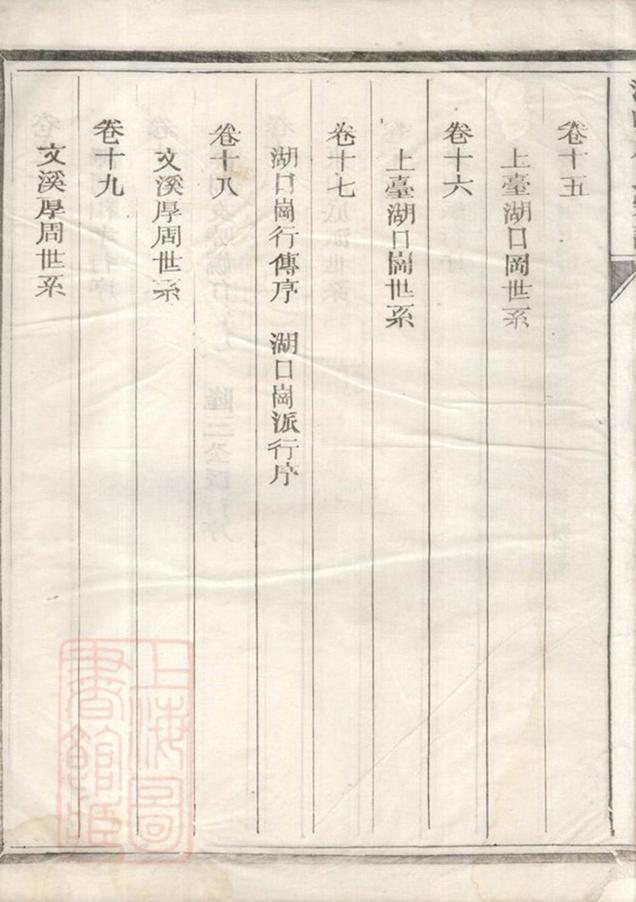 卷十五
上臺湖口岡世系
卷十六
上臺湖口崗世系
卷十七
湖口崗行傳序　湖口崗派行序
卷十八
文溪厚周世系
卷十九
文溪厚周世系
上海圖
書館藏